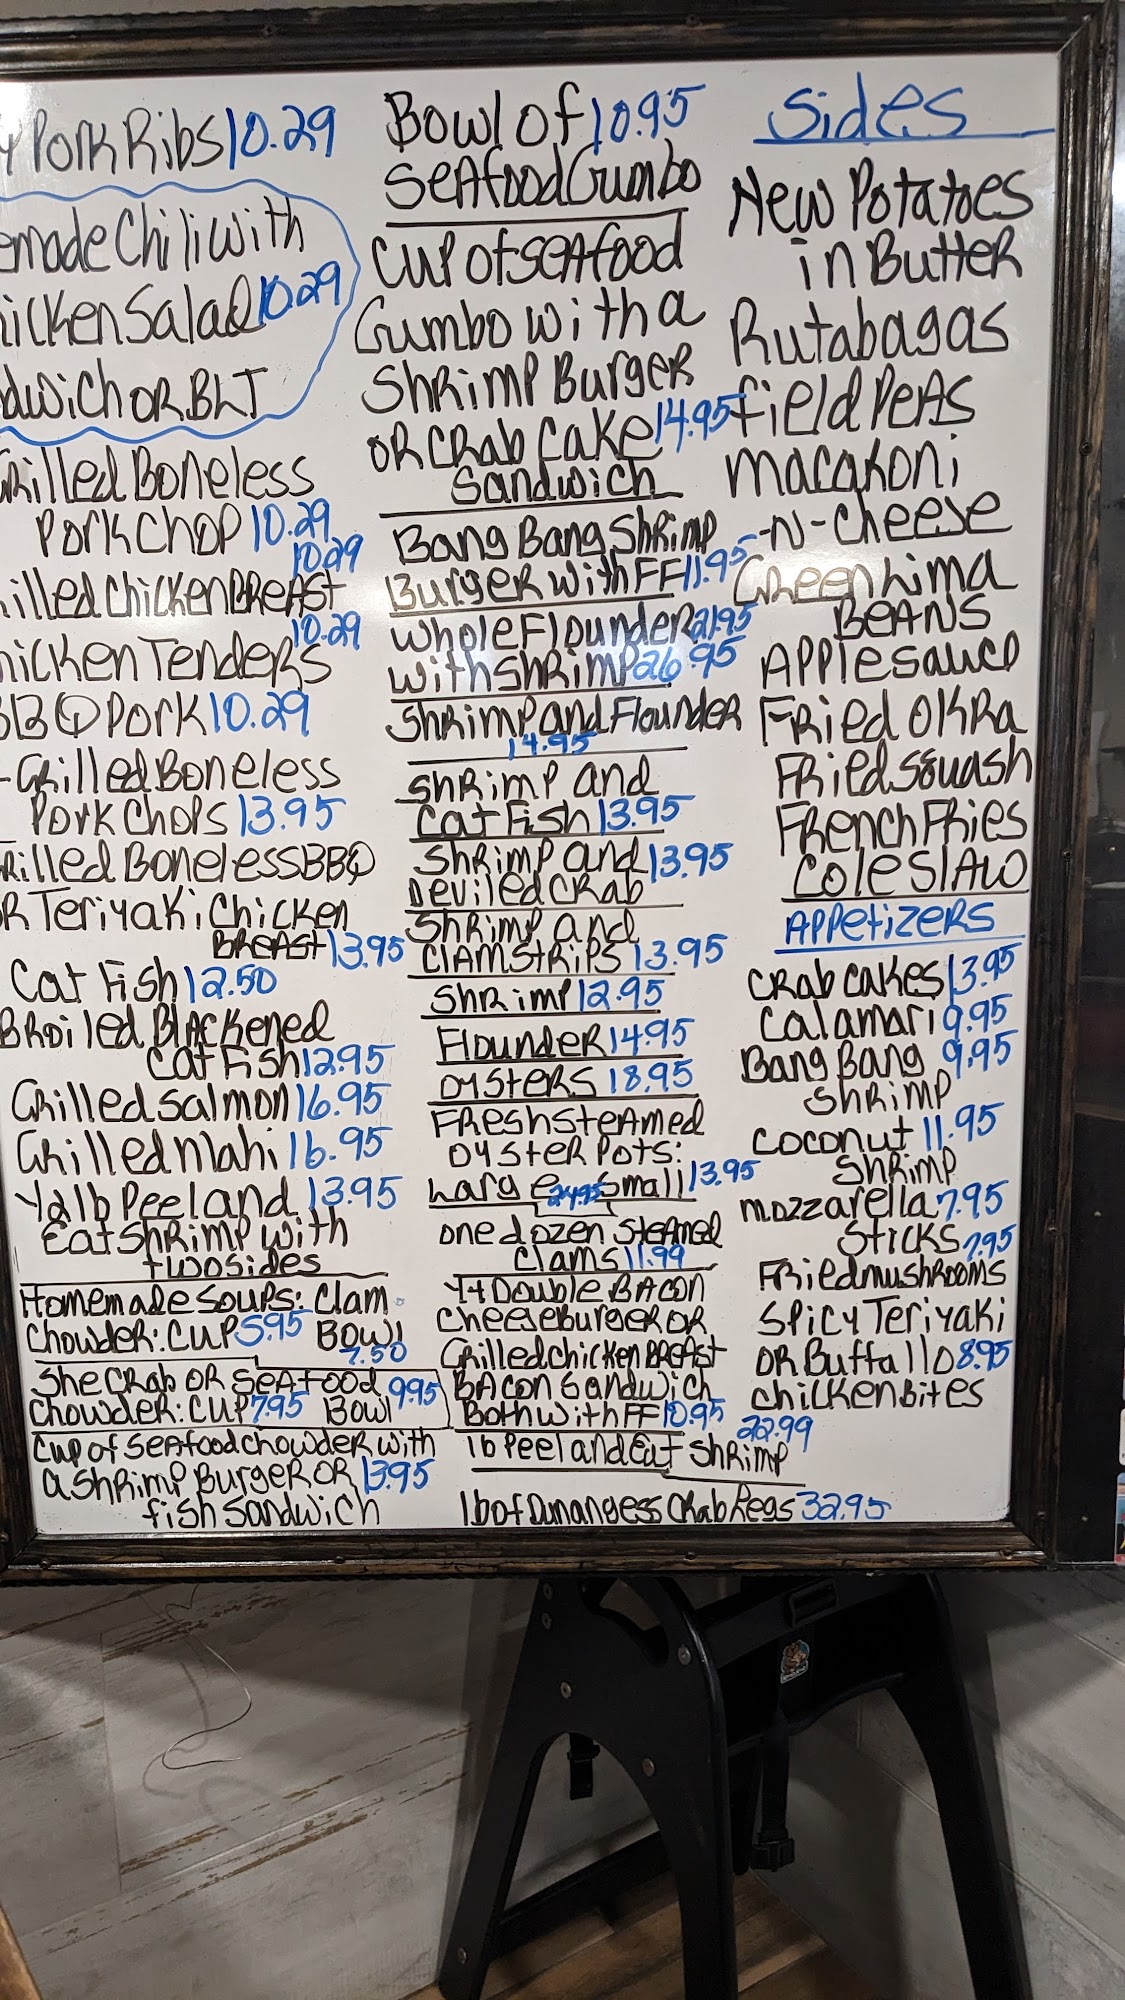 Pork Ribs 10.29
Chili with
Salad 10.29
OR BLT
Grilled Boneless
Pork Chop 10.29
10.29
Grilled Chicken Breast
10.29
Chicken Tenders
BBQ Pork 10.29
-Grilled Boneless
Pork Chops 13.95
Grilled Boneless BBQ
OR Teriyaki Chicken
Breast 13.95
Cat Fish 12.50
Broiled Blackened
Cat Fish 12.95
Grilled Salmon 16.95
Grilled Mahi 16.95
1/2 lb Peel and 13.95
Eat Shrimp with
two sides
Homemade Soups: Clam
Chowder: Cup 5.95 Bowl
7.50
She Crab OR Seafood 9.95
Chowder: Cup 7.95 Bowl
Cup of Seafood Chowder with
a Shrimp Burger OR 13.95
fish sandwich
Bowl of 10.95
Seafood Gumbo
Cup of Seafood
Gumbo with a
Shrimp Burger
OR Crab Cake 14.95
Sandwich
Bang Bang Shrimp
Burger with FF 11.95
Whole Flounder 21.95
with Shrimp 26.95
Shrimp and Flounder
14.95
Shrimp and
Cat Fish 13.95
Shrimp and 13.95
Deviled Crab
Shrimp and
Clam Strips 13.95
Shrimp 12.95
Flounder 14.95
Oysters 18.95
Fresh Steamed
Oyster Pots:
Large 24.95 Small 13.95
One dozen Steamed
Clams 11.99
Double Bacon
Cheeseburger OR
Grilled Chicken Breast
Bacon Sandwich
Both with FF 10.95
22.99
1 lb Peel and Eat Shrimp
1 lb of Dunangess Crab Legs 32.95
Sides
New Potatoes
in Butter
Rutabagas
Field Peas
Macaroni
-N- Cheese
Green Lima
Beans
Applesauce
Fried Okra
Fried Squash
French Fries
Cole Slaw
Appetizers
Crab Cakes 13.95
Calamari 9.95
Bang Bang 9.95
Shrimp
Coconut 11.95
Shrimp
Mozzarella 7.95
Sticks 7.95
Fried mushrooms
Spicy Teriyaki
OR Buffallo 8.95
Chicken Bites